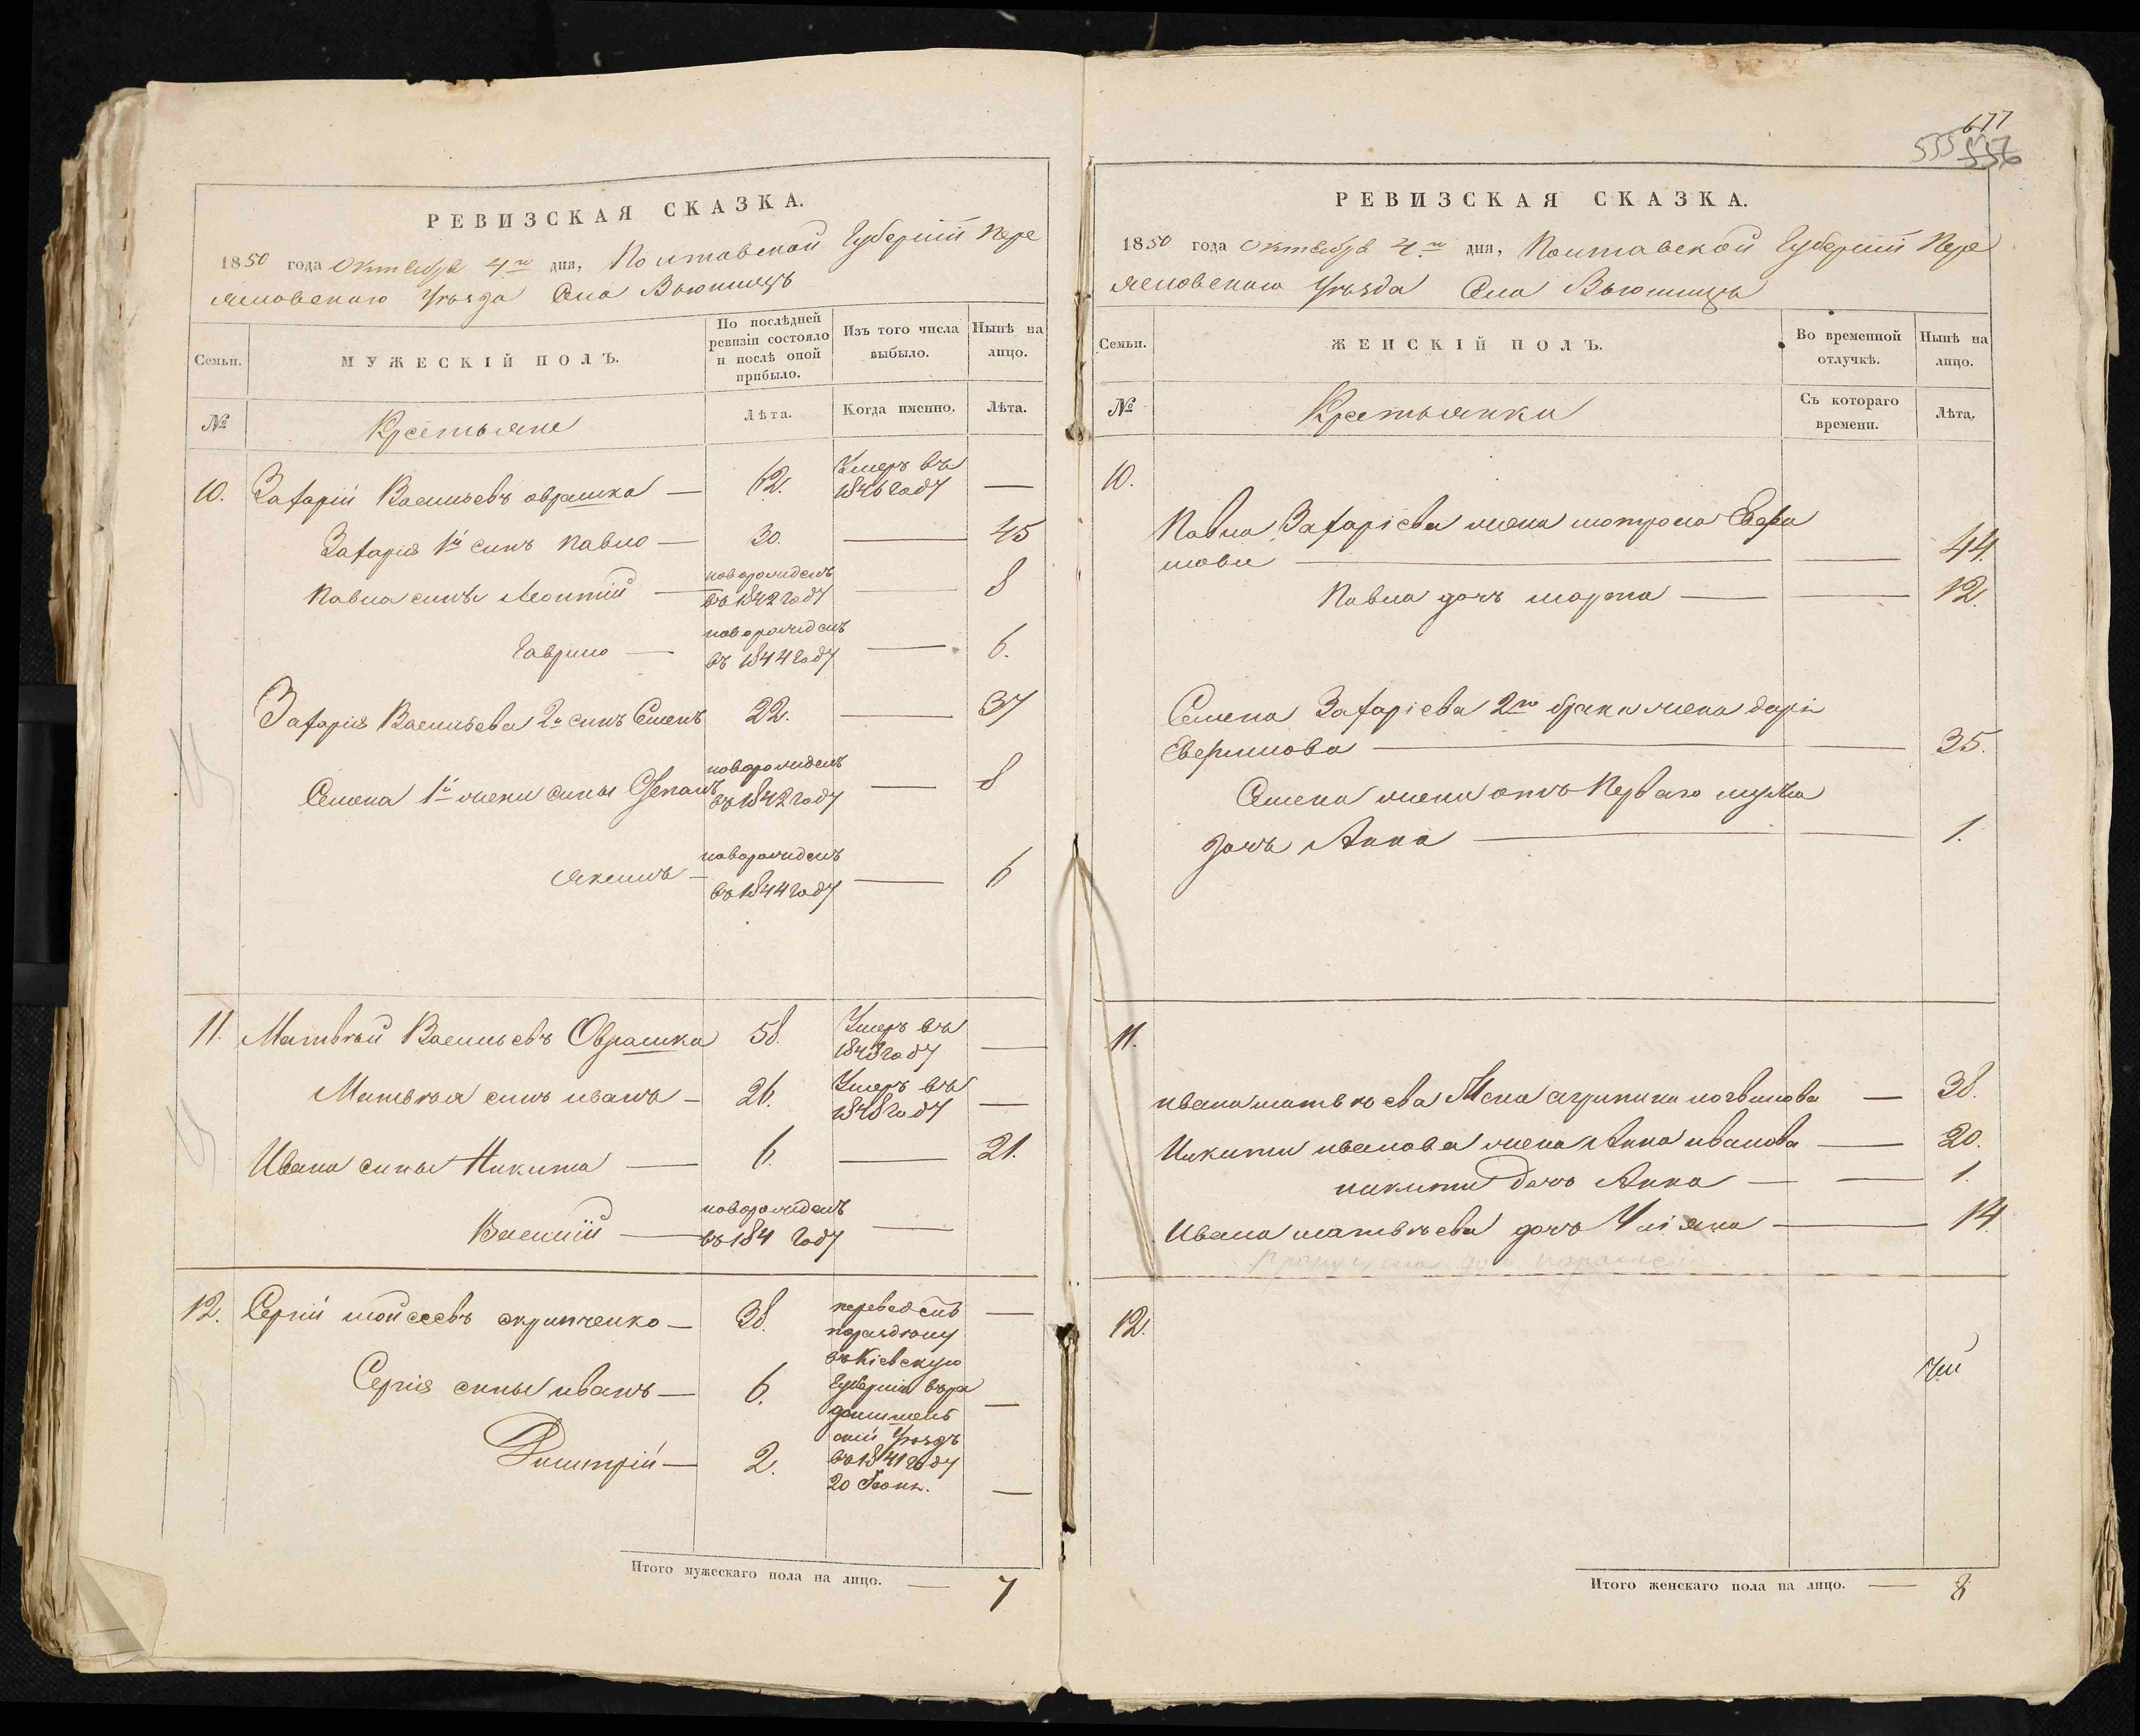 РЕВИЗСКАЯ СКАЗКА.
1850 года Октября 4го дня, Полтавской Губернии Пере
яславского Уѣзда Села Вьюнищъ
Семьи.
МУЖЕСКІЙ ПОЛЪ.
По послѣдней ревизіи состояло и послѣ оной прибыло.
Изъ того числа выбыло.
Нынѣ на лицо.
№
Крестьяне
Лѣта.
Когда именно.
Лѣта.
10. Захарій Васильевъ Оврашко — 62. Умеръ въ 1846 году —
Захарія 1й сынъ Павло — 30. — 45
Павла сыны Леонтій — новорожденъ въ 1842 году — 8
Гаврило — новорожденъ въ 1844 году — 6.
Захарія Васильева 2й сынъ Семенъ 22. — 37
Семена 1й жены сыны новорожденъ въ 1842 году — 8
Якимъ — новорожденъ въ 1844 году — 6
11. Матвѣй Васильевъ Оврашко 58. Умеръ въ 1848 году —
Матвѣя сынъ иванъ — 26. Умеръ въ 1848 году —
Ивана сыны Никита — 6. — 21.
Василій — новорожденъ въ 184 году —
12. Сергій мойсеевъ скрипченко — 38. переведенъ —
Сергія сыны иванъ — 6. въ Кіевскую Губернію —
Дмитрій — 2. Уѣздъ въ 1841 году 20 —
Итого мужескаго пола на лицо. — 7
677
555 556
РЕВИЗСКАЯ СКАЗКА.
1850 года Октября 4го дня, Полтавской Губерніи Пере
яславского Уѣзда Села Вьюнищъ
Семьи.
ЖЕНСКІЙ ПОЛЪ.
Во временной отлучкѣ.
Нынѣ на лицо.
№
Крестьянки
Съ котораго времени.
Лѣта.
10.
Павла Захаріева жена мотрона Евфи
мова — — 44.
Павла дочь марта — — 12.
Семена Захаріева 2го брака жена дарія
— — 35.
Семена жены отъ Перваго мужа
дочь Анна — — 1.
11.
ивана матвѣева жена агрипина логвинова — 38.
Никиты иванова жена Анна иванова — 20.
никиты дочь Анна — — 1.
Ивана матвѣева дочь Уліяна — 14.
12.
Итого женскаго пола на лицо. — 8